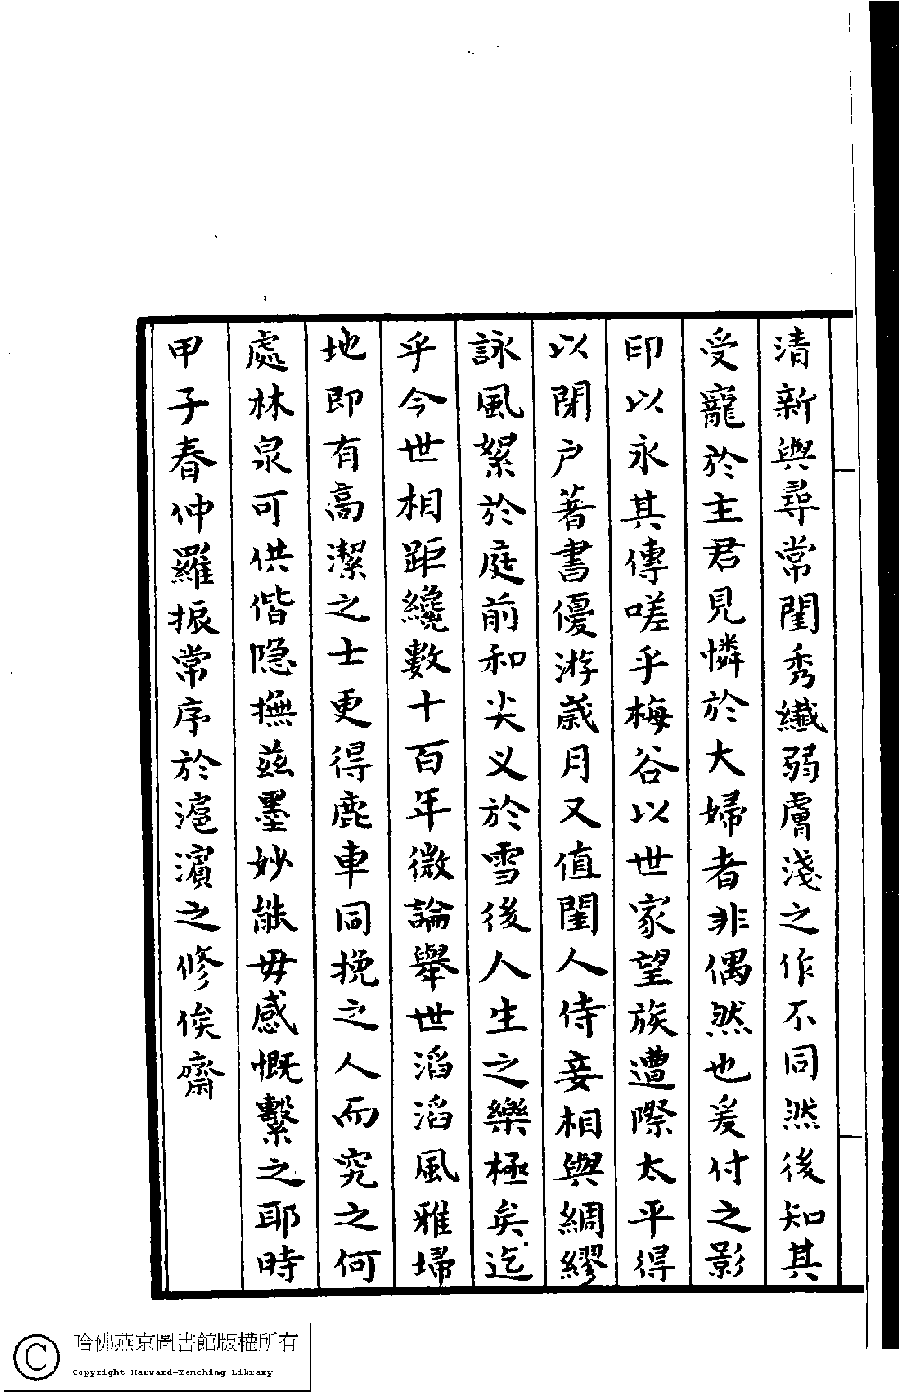 清新與尋常閨秀纖弱膚淺之作不同然後知其
受寵於主君見憐於大婦者非偶然也爰付之影
印以永其傳嗟乎梅谷以世家望族遭際太平得
以閉户著書優游歲月又值閨人侍妾相與綢繆
詠風絮於庭前和尖义於雪後人生之樂極矣迄
乎今世相距纔數十百年微論舉世滔滔風雅埽
地即有高潔之士更得鹿車同挽之人而究之何
處林泉可供偕隐撫兹墨妙能毋感慨繫之耶時
甲子春仲羅振常序於滬濱之修俟齋
哈佛燕京圖書館版權所有
Copyright Harvard-Yenching Library